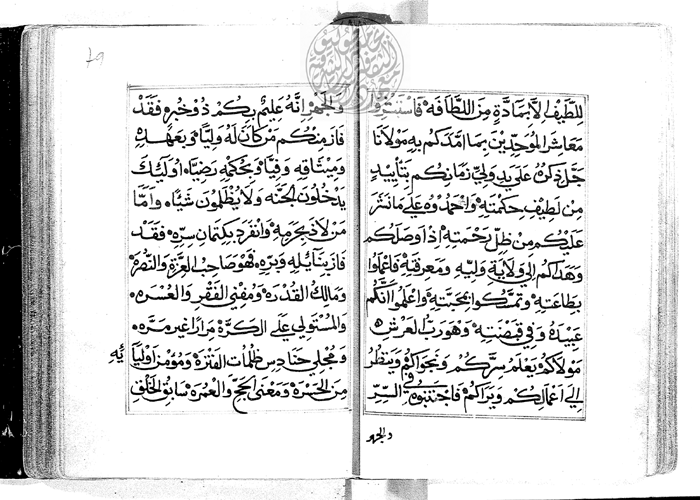 للطيف الا بمادة من اللطافه فاستتروا
معاشر الموحدين بما امدكم به مولانا
جل ذكره على يد ولي زمانكم بتأييد
من لطيف حكمته واحمدوه على ما نشر
عليكم من ظل رحمته اذ اوصلكم
وهداكم الى ولاية وليه ومعرفته فاعملوا
بطاعته وتمسكوا بمحبته واعلموا انكم
عبيده وفي قبضته وهو رب العرش
مولاكم يعلم سركم ونجواكم وينظر
الى اعمالكم ويراكم فاجتنبوه في السر
والجهر
٧٩
والجهر انه عليم بكم ذو خبره فقد
فاز منكم من كان له وليا وبعهده
وميثاقه وفيا وبحكمه رضيا اوليك
يدخلون الجنه ولا يظلمون شيا واما
من لاذ بحرمه وانفرد بكتمان سره فقد
فاز بنايله وبره فهو صاحب العزة والنصرة
ومالك القدره ومفني الفقر والعسره
والمستولي على الكرة مرارا غير مره
ومجلي حنادس ظلمات الفترة ومؤمن اوليا
يه
من الحسرة ومعنى الحج والعمره سابق الخلق